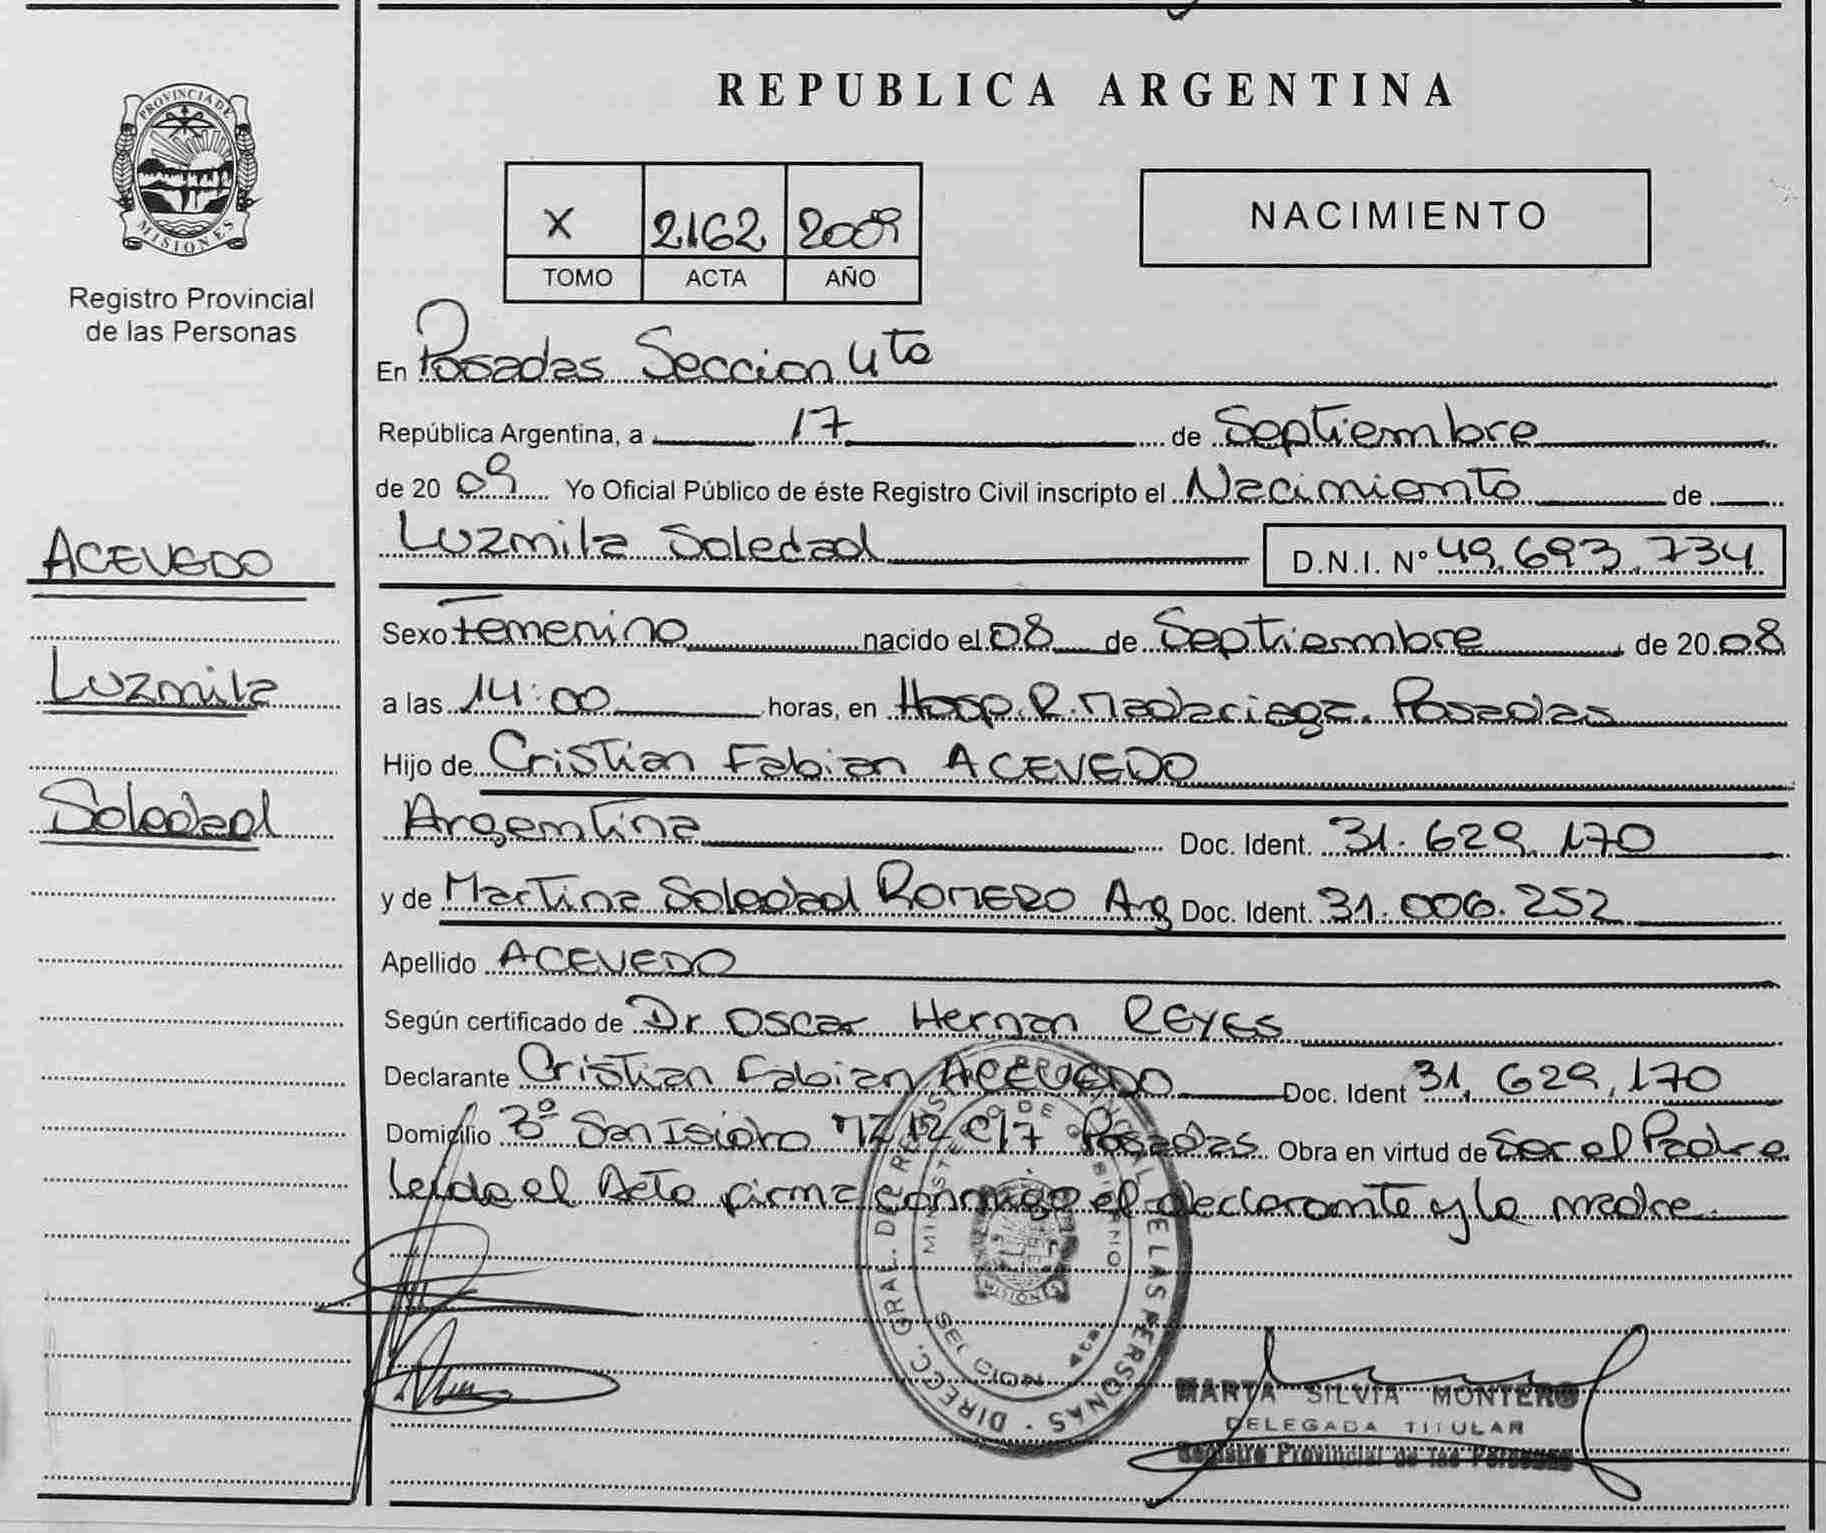 PROVINCIA DE
MISIONES
Registro Provincial
de las Personas
ACEVEDO
Luzmila
Soledad
REPUBLICA ARGENTINA
X 2162 2009
TOMO ACTA AÑO
NACIMIENTO
En Posadas Seccion 4ta
República Argentina, a 17 de Septiembre
de 2009 Yo Oficial Público de éste Registro Civil inscripto el Nacimiento de
Luzmila Soledad D.N.I. Nº 49.693.734
Sexo Femenino nacido el 08 de Septiembre de 2008
a las 14:00 horas, en Hosp. R. Madariaga. Posadas
Hijo de Cristian Fabian ACEVEDO
Argentina Doc. Ident. 31.629.170
y de Martina Soledad ROMERO Arg Doc. Ident. 31.006.252
Apellido ACEVEDO
Según certificado de Dr Oscar Hernan REYES
Declarante Cristian Fabian ACEVEDO Doc. Ident 31.629.170
Domicilio Bº San Isidro MZ 12 C17 Posadas Obra en virtud de Ser el Padre
leida el Acta firma conmigo el declarante y la madre
DIRECC. GRAL. DE REGISTRO PROVINCIAL DE LAS PERSONAS
MINISTERIO DE GOBIERNO
SECCION 4ta.
MARTA SILVIA MONTERO
DELEGADA TITULAR
Registro Provincial de las Personas